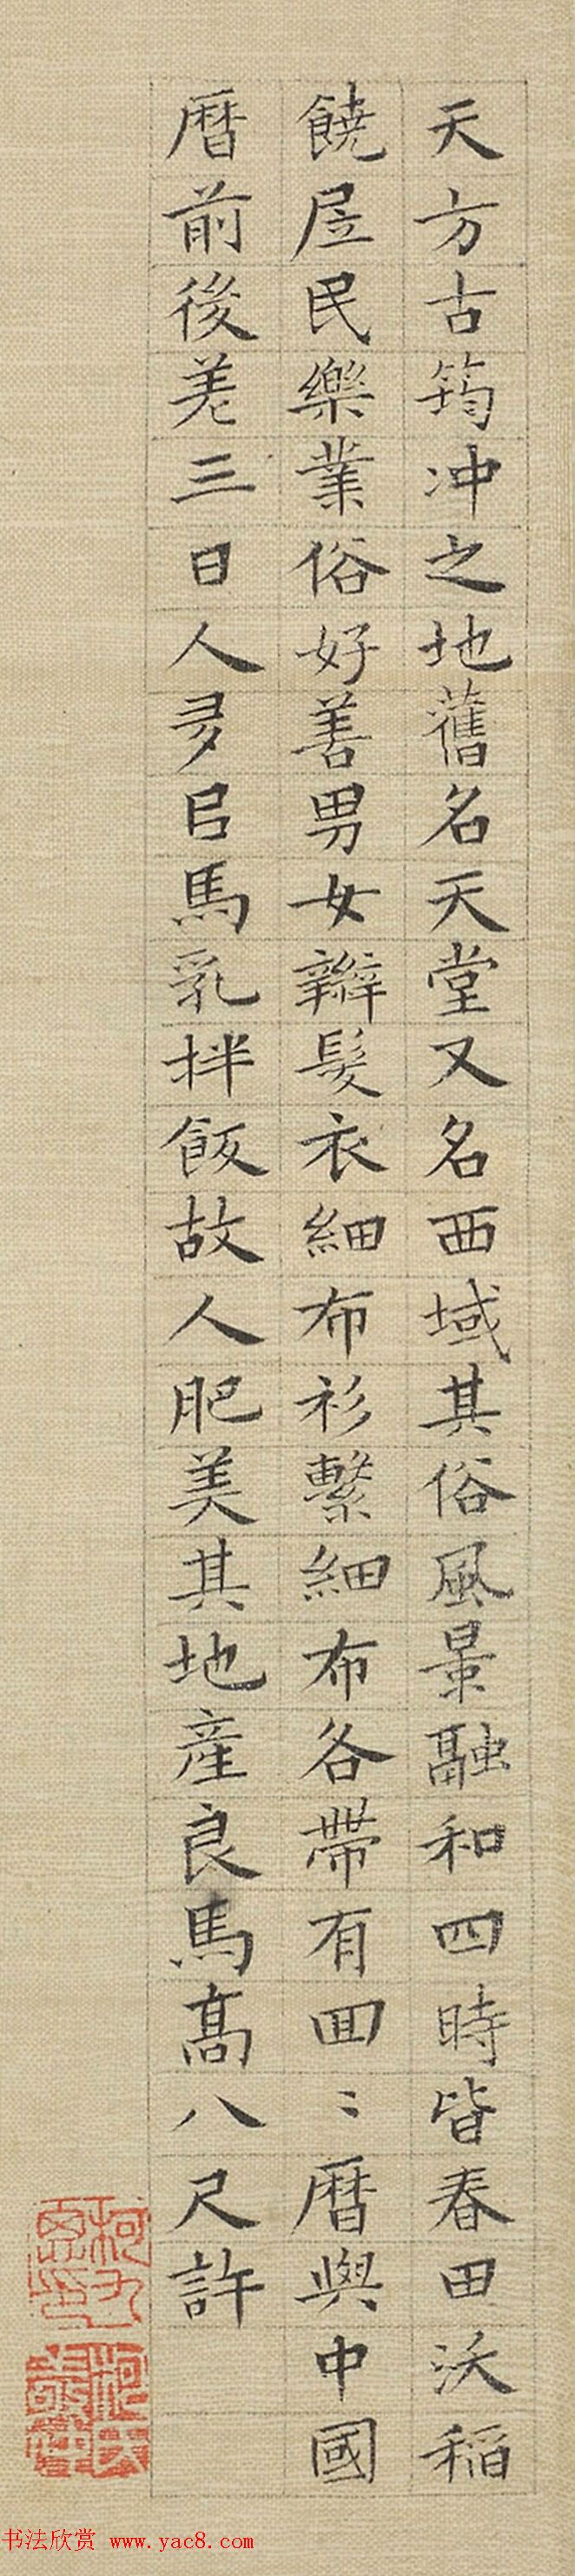 天方古筠冲之地舊名天堂又名西域其俗風景融和四時皆春田沃稻
饒居民樂業俗好善男女辮髮衣細布衫繫細布各帶有回〻曆與中國
曆前後差三日人多㠯馬乳拌飯故人肥美其地産良馬高八尺許
书法欣赏 www.yac8.com